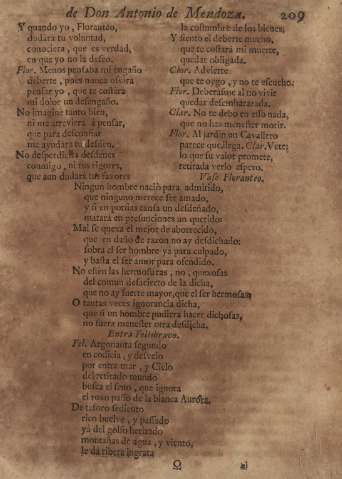 de Don Antonio de Mendoza. 209
Y quando yo, Floranteo,
dudára tu voluntad,
conociera, que es verdad,
en que yo no la deseo.
Flor. Menos pensaba mi engaño
deberte, pues nunca
pensar yo, que te costára
mi dolor un desengaño.
No imagine tanto bien,
ni me atreviera à pensar,
que para desconfiar
me ayudára tu desden.
No desperdicia desdenes
conmigo, ni tus rigores,
que aun dudará tus favores
la costumbre de los bienes;
Y siento el deberte mucho,
que te costará mi muerte,
quedar obligada.
Clar. Advierte
que te oygo, y no te escucho.
Flor. Deberasme al no vivir
quedar desembarazada.
Clar. No te debo en esso nada,
que no has menester morir.
Flor. Al jardin un Cavallero
parece que llega. Clar. Vete;
lo que su valor promete,
retirada verlo espero.
Vase Floranteo.
Ningun hombre naciò para admitido,
que ninguno merece ser amado,
y si en porfias cansa un desdeñado,
matará en presunciones un querido.
Mal se quexa el mejor de aborrecido,
que en daño de razon no ay desdichado:
sobra el ser hombre yà para culpado,
y basta el ser amor para ofendido.
No estèn las hermosuras, no, quexosas
del comun desacierto de la dicha,
que no ay suerte mayor, que el ser hermosas
O tantas veces ignorancia dicha,
que si un hombre pudiera hacer dichosas,
no fuera menester otra desdicha.
Entra Felisbravo.
Fel. Argonauta segundo
en codicia, y desvelo
por entra mar, y Cielo
del retirado mundo
busca el seno, que ignora
el roxo passo de la blanca Aurora.
De tesoro sediento
rico buelve, y passado
yà del golfo herizado
montañas de agua, y viento,
le dà ribera ingrata
O al